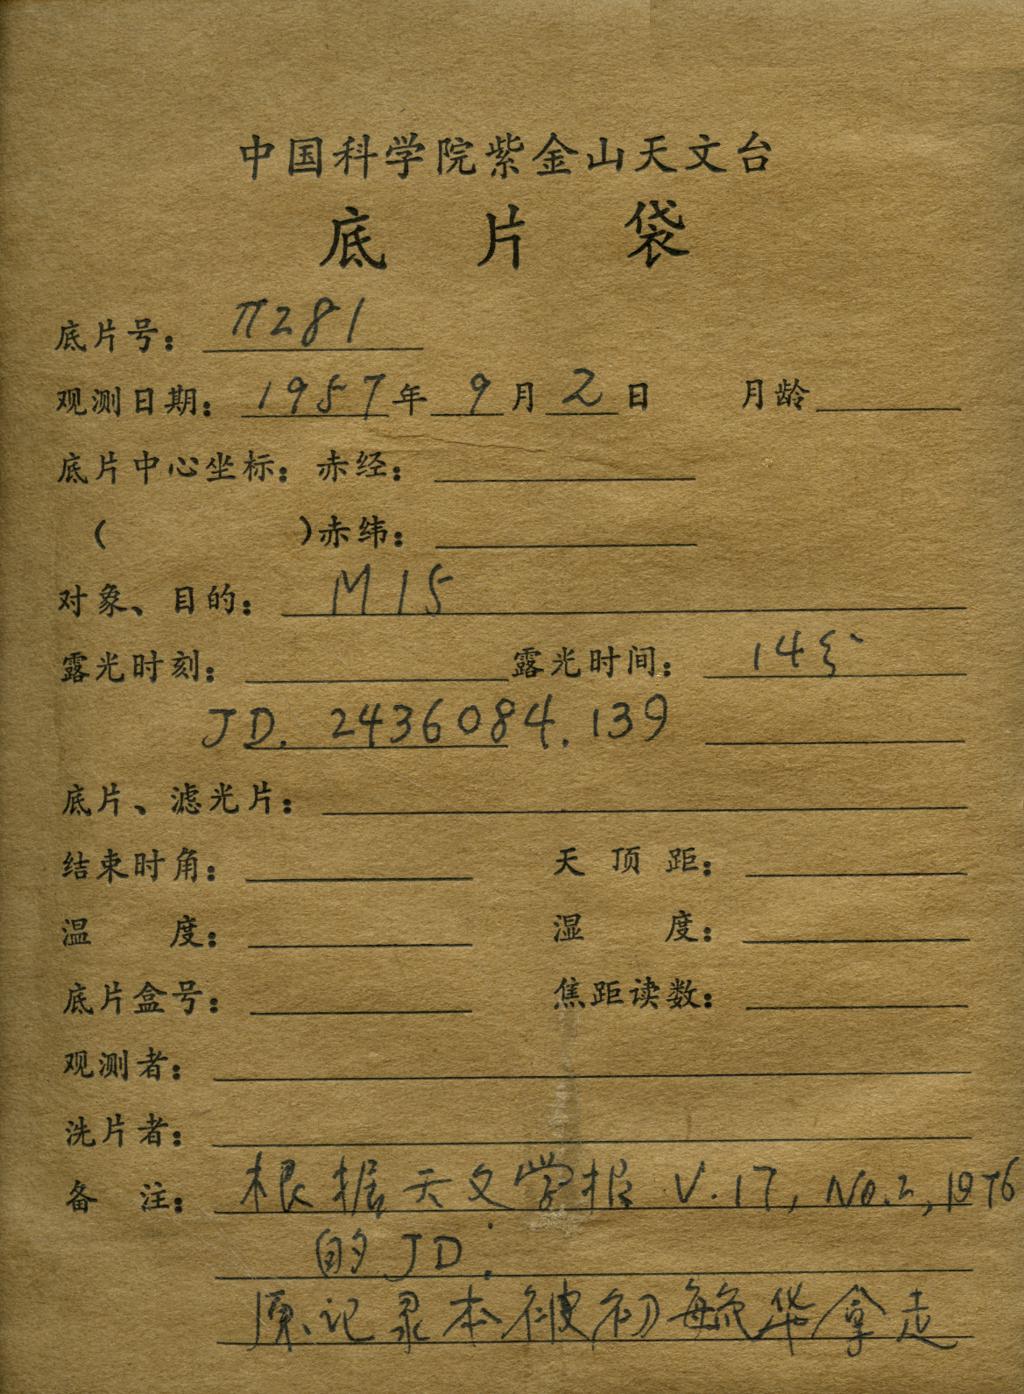 中国科学院紫金山天文台
底片袋
底片号: π281
观测日期: 1957年 9月 2日 月龄
底片中心坐标: 赤经:
( )赤纬:
对象、目的: M15
露光时刻: 露光时间: 14分
JD. 2436084.139
底片、滤光片:
结束时角: 天顶距:
温度: 湿度:
底片盒号: 焦距读数:
观测者:
洗片者:
备注: 根据天文学报 V.17, No.2, 1976
的JD.
原记录本被初毓华拿走